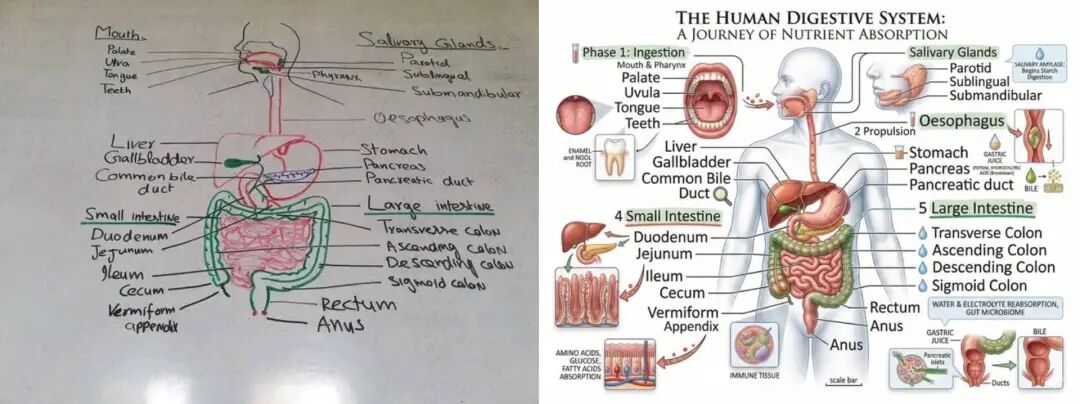 Mouth
Palate
Ulva
Tongue
Teeth
Salivary Glands
Parotid
Sublingual
Submandibular
Phyranx
Oesophagus
Liver
Gallbladder
Common bile
duct
Stomach
Pancreas
Pancreatic duct
Small intestine
Duodenum
Jejunum
Ileum
Cecum
Vermiform
appendix
Large intestine
Transverse colon
Ascending colon
Descending colon
Sigmoid colon
Rectum
Anus
THE HUMAN DIGESTIVE SYSTEM:
A JOURNEY OF NUTRIENT ABSORPTION
Phase 1: Ingestion
Mouth & Pharynx
Palate
Uvula
Tongue
Teeth
ENAMEL
AND NOOL
ROOT
Salivary Glands
Parotid
Sublingual
Submandibular
SALIVARY AMYLASE:
Begins Starch
Digestion
2 Propulsion
Oesophagus
GASTRIC
JUICE
(PEPSIN, HYDROCHLORIC
ACID (Breakdown)
BILE
Liver
Gallbladder
Common Bile
Duct
Stomach
Pancreas
Pancreatic duct
4 Small Intestine
Duodenum
Jejunum
Ileum
Cecum
Vermiform
Appendix
5 Large Intestine
Transverse Colon
Ascending Colon
Descending Colon
Sigmoid Colon
Rectum
Anus
Anus
WATER & ELECTROLYTE REABSORPTION,
GUT MICROBIOME
AMINO ACIDS,
GLUCOSE,
FATTY ACIDS
ABSORPTION
IMMUNE TISSUE
scale bar
GASTRIC
JUICE
Pancreatic
islets
Ducts
BILE